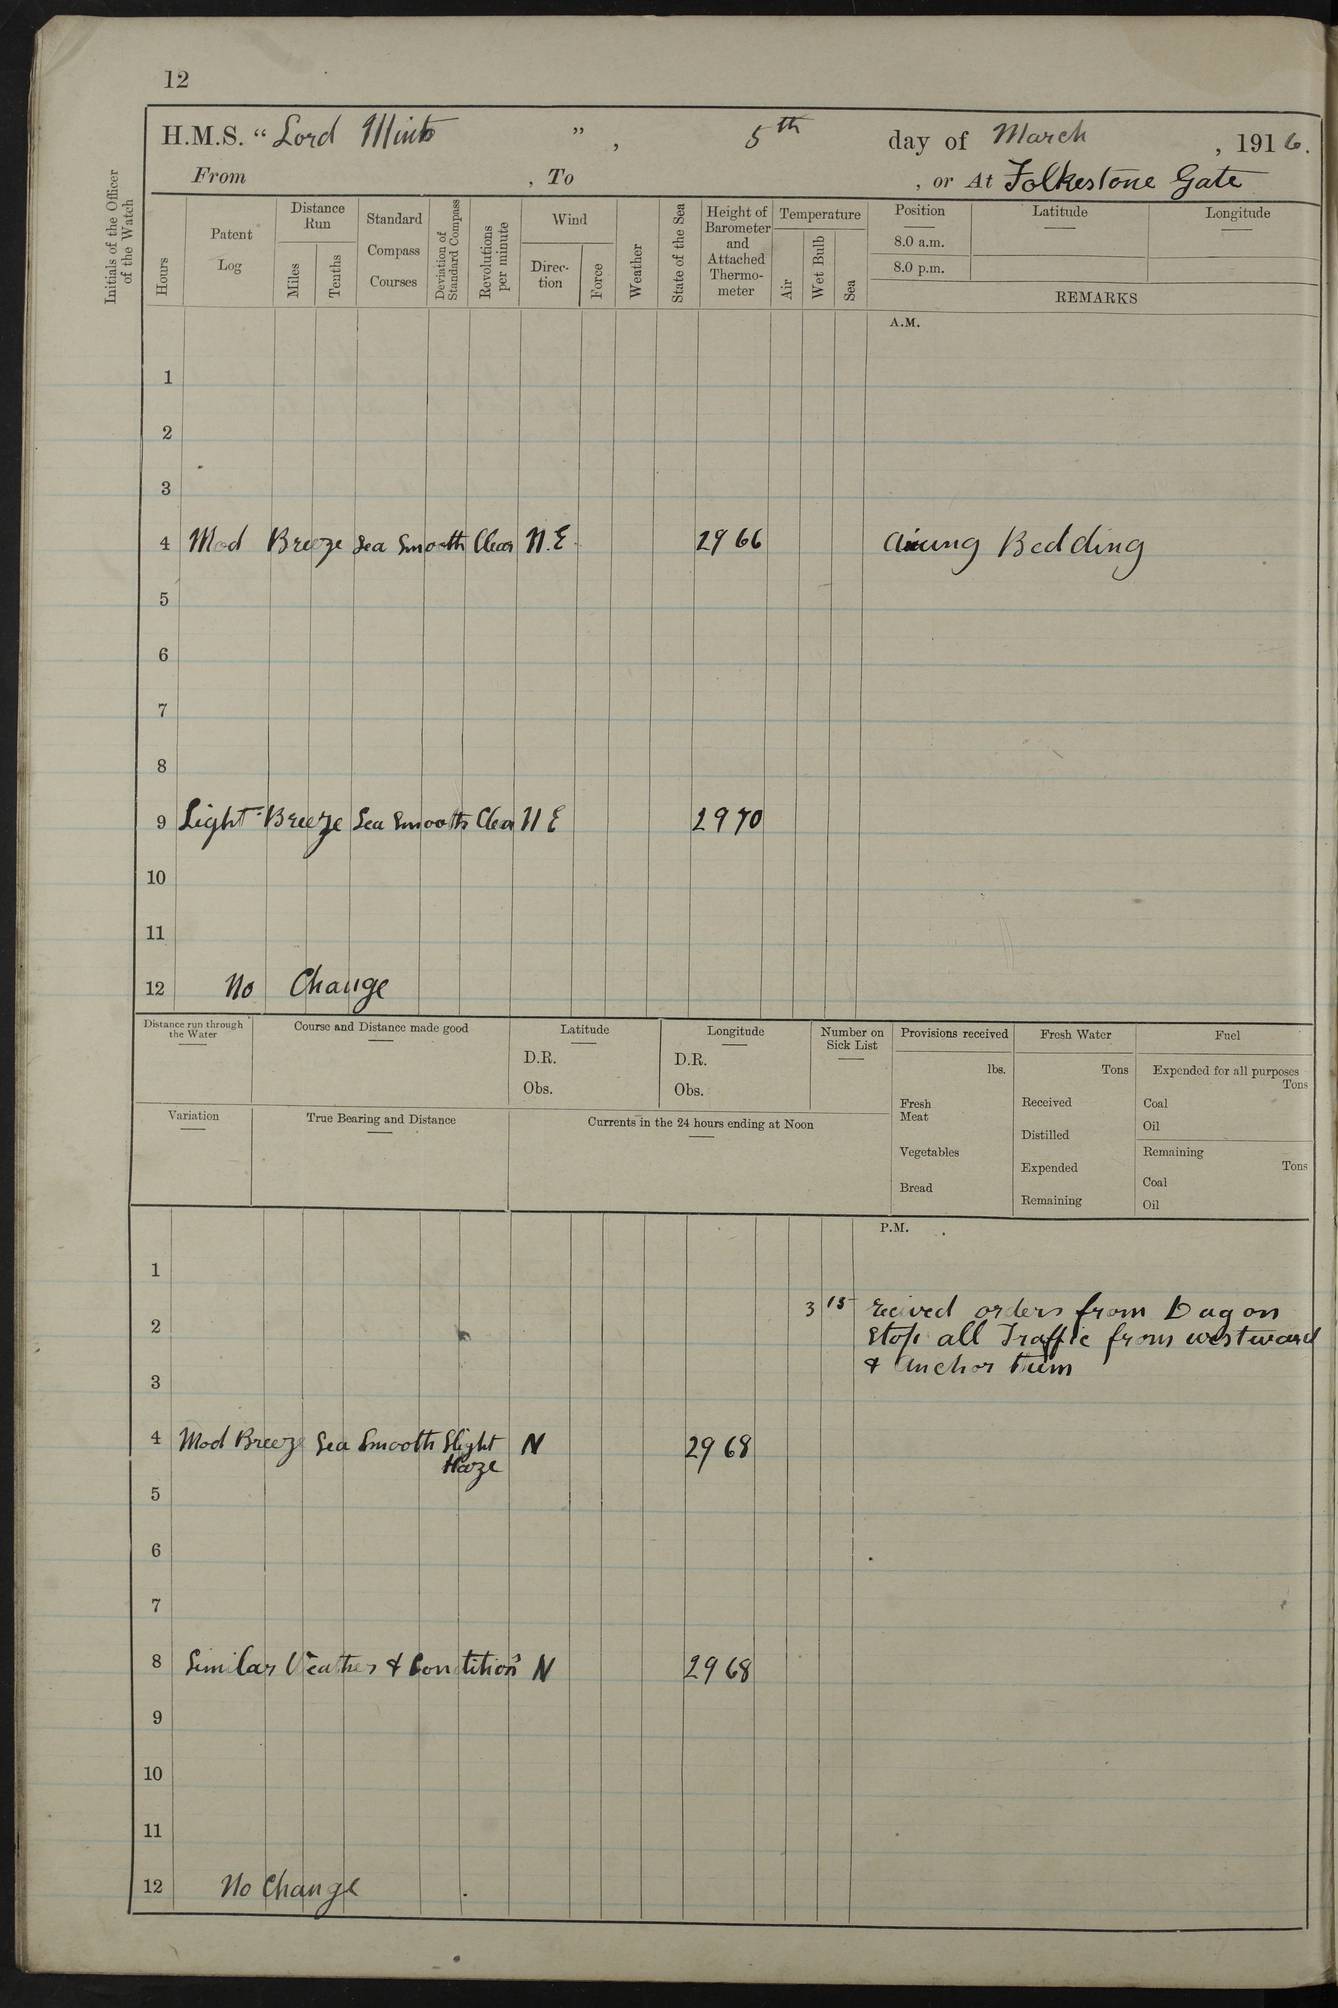 12
H.M.S. “ Lord Minto ” , 5th day of March , 1916.
From , To , or At Folkestone Gate
Initials of the Officer of the Watch
Hours
Patent Log
Distance Run
Miles
Tenths
Standard Compass Courses
Deviation of Standard Compass
Revolutions per minute
Wind
Direc-tion
Force
Weather
State of the Sea
Height of Barometer and Attached Thermo-meter
Temperature
Air
Wet Bulb
Sea
Position
8.0 a.m.
8.0 p.m.
Latitude
Longitude
REMARKS
A.M.
1
2
3
4 Mod Breeze Sea Smooth Clear N.E. 29 66 airing Bedding
5
6
7
8
9 Light Breeze Sea Smooth Clear N E 29 70
10
11
12 No Change
Distance run through the Water
Course and Distance made good
Latitude
D.R.
Obs.
Longitude
D.R.
Obs.
Number on Sick List
Provisions received
lbs.
Fresh Meat
Vegetables
Bread
Fresh Water
Tons
Received
Distilled
Expended
Remaining
Fuel
Expended for all purposes
Tons
Coal
Oil
Remaining
Tons
Coal
Oil
Variation
True Bearing and Distance
Currents in the 24 hours ending at Noon
P.M.
1
3 15 recived orders from Dagon
2 stop all Traffic from westward
& anchor them
3
4 Mod Breeze Sea Smooth Slight N 29 68
Haze
5
6
7
8 Similar Weather & Conditions N 29 68
9
10
11
12 No Change